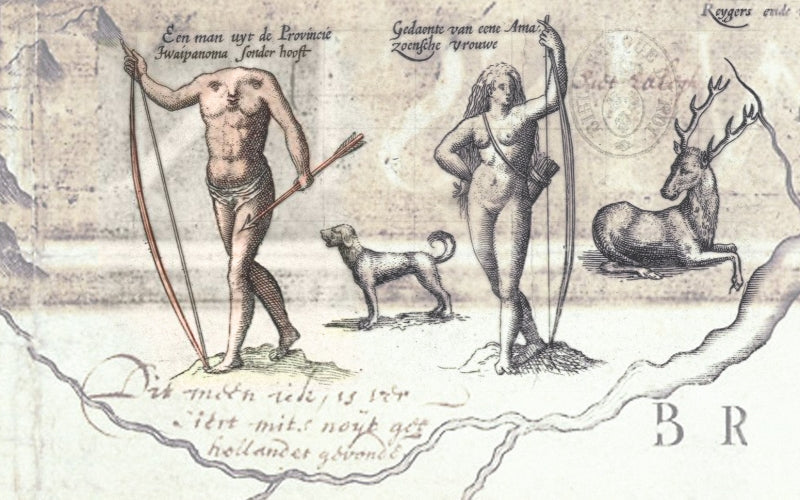 Een man uyt de Provincie
Iwaipanoma sonder hooft
Gedaente van eene Ama
zoensche vrouwe
Reygers ende
Dit meen ick, is ver
siert mits noÿt get
hollander gevonde
B R